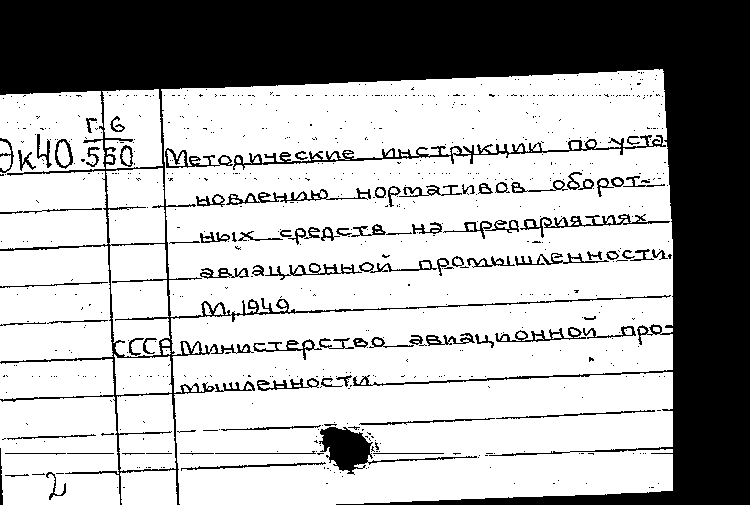 Г-6
Эк40.560 Методические инструкции по уста-
новлению нормативов оборот-
ных средств на предприятиях
авиационной промышленности.
М., 1949.
СССР. Министерство авиационной про-
мышленности.
2